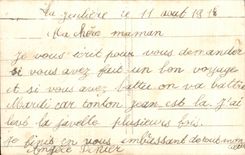 La le 11 août 1916
Ma chère maman
je vous écrit pour vous demander
si vous avez fait un bon voyage
et si vous avez battre on va battre
Mardi car tonton jean est la J'ai
levé la javelle plusieurs fois.
je finis en vous embrassant de tout mon